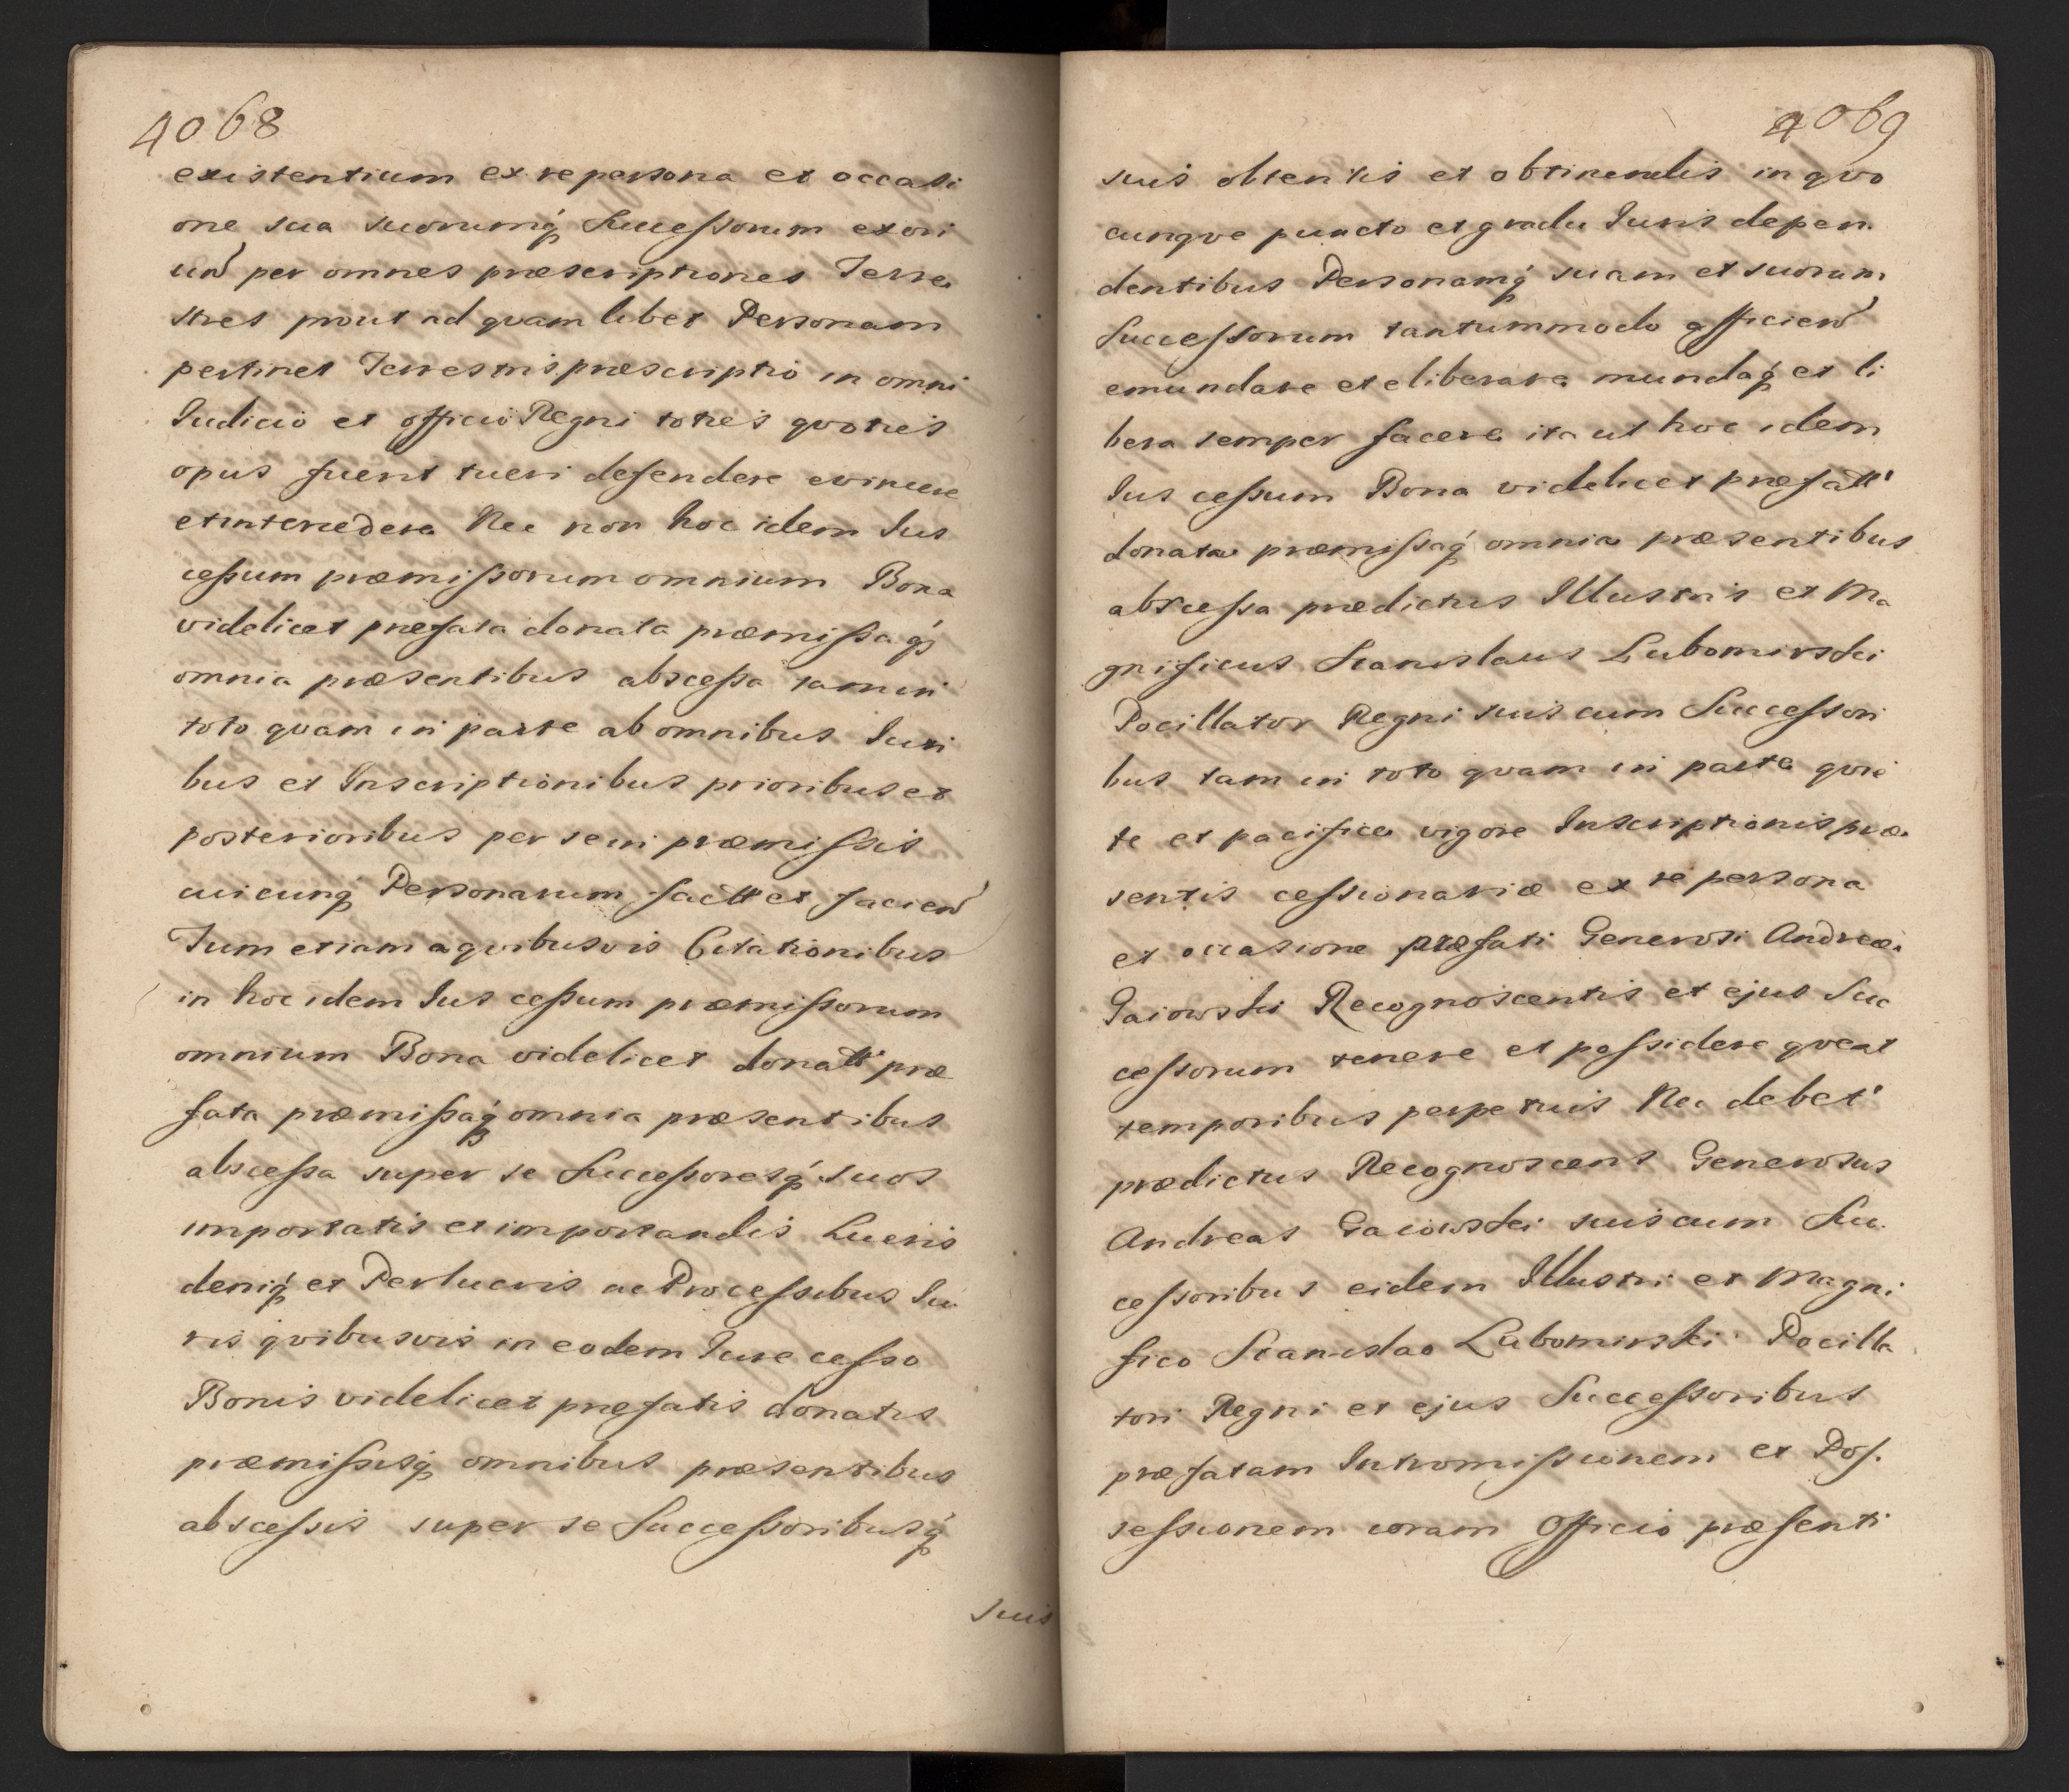 4068
existentium ex re persona et occasi
one sua suorumq́ Successorum exori
und per omnes præscriptiones Terre
stres prout ad qvam libet Personam
pertinet Terrestris præscriptio in omni
Judicio et officio Regni toties qvoties
opus fuerit tueri defendere evincere
et intercedere Nec non hoc idem Jus
cessum præmissorum omnium Bona
videlicet præfata donata præmissaq́
omnia præsentibus abscessa tam in
toto qvam in parte ab omnibus Juri
bus et Inscriptionibus prioribus et
posterioribus per se in præmissis
cuicunq́ Personarum factt et faciend
Tum etiam a qvibusvis Citationibus
in hoc idem Jus cessum præmissorum
omnium Bona videlicet donatt præ
fata præmissaq́ omnia præsentibus
abscessa super se Successoresq́ suos
importatis et importandis Lucris
deniq́ et Perlucris ac Processibus Ju
ris qvibusvis in eodem Jure cesso
Bonis videlicet præfatis donatis
præmissisq́ omnibus præsentibus
abscessis super se Successoribusq́
suis
4069
suis obtentis et obtinendis in qvo
cunqve puncto et gradu Juris depen
dentibus Personamq́ suam et suorum
Successorum tantummodo afficiend
emundare et eliberare mundaq́ et li
bera semper facere ita ut hoc idem
Jus cessum Bona videlicet præfatt
donata præmissaq́ omnia præsentibus
abscessa prædictus Illustris et Ma
gnificus Stanislaus Lubomirski
Pocillator Regni suis cum Successori
bus tam in toto qvam in parte qvie
te et pacifice vigore Inscriptionis præ
sentis cessionariæ ex re persona
et occasione præfati Generosi Andreæ
Gaiowski Recognoscentis et ejus Suc
cessorum tenere et possidere qveat
temporibus perpetuis Nec debet
prædictus Recognoscens Generosus
Andreas Gaiowski suis cum Suc
cessoribus eidem Illustri et Magni
fico Stanislao Lubomirski Pocilla
tori Regni et ejus Successoribus
præfatam Intromissionem et Pos
sessionem coram Officio præsenti